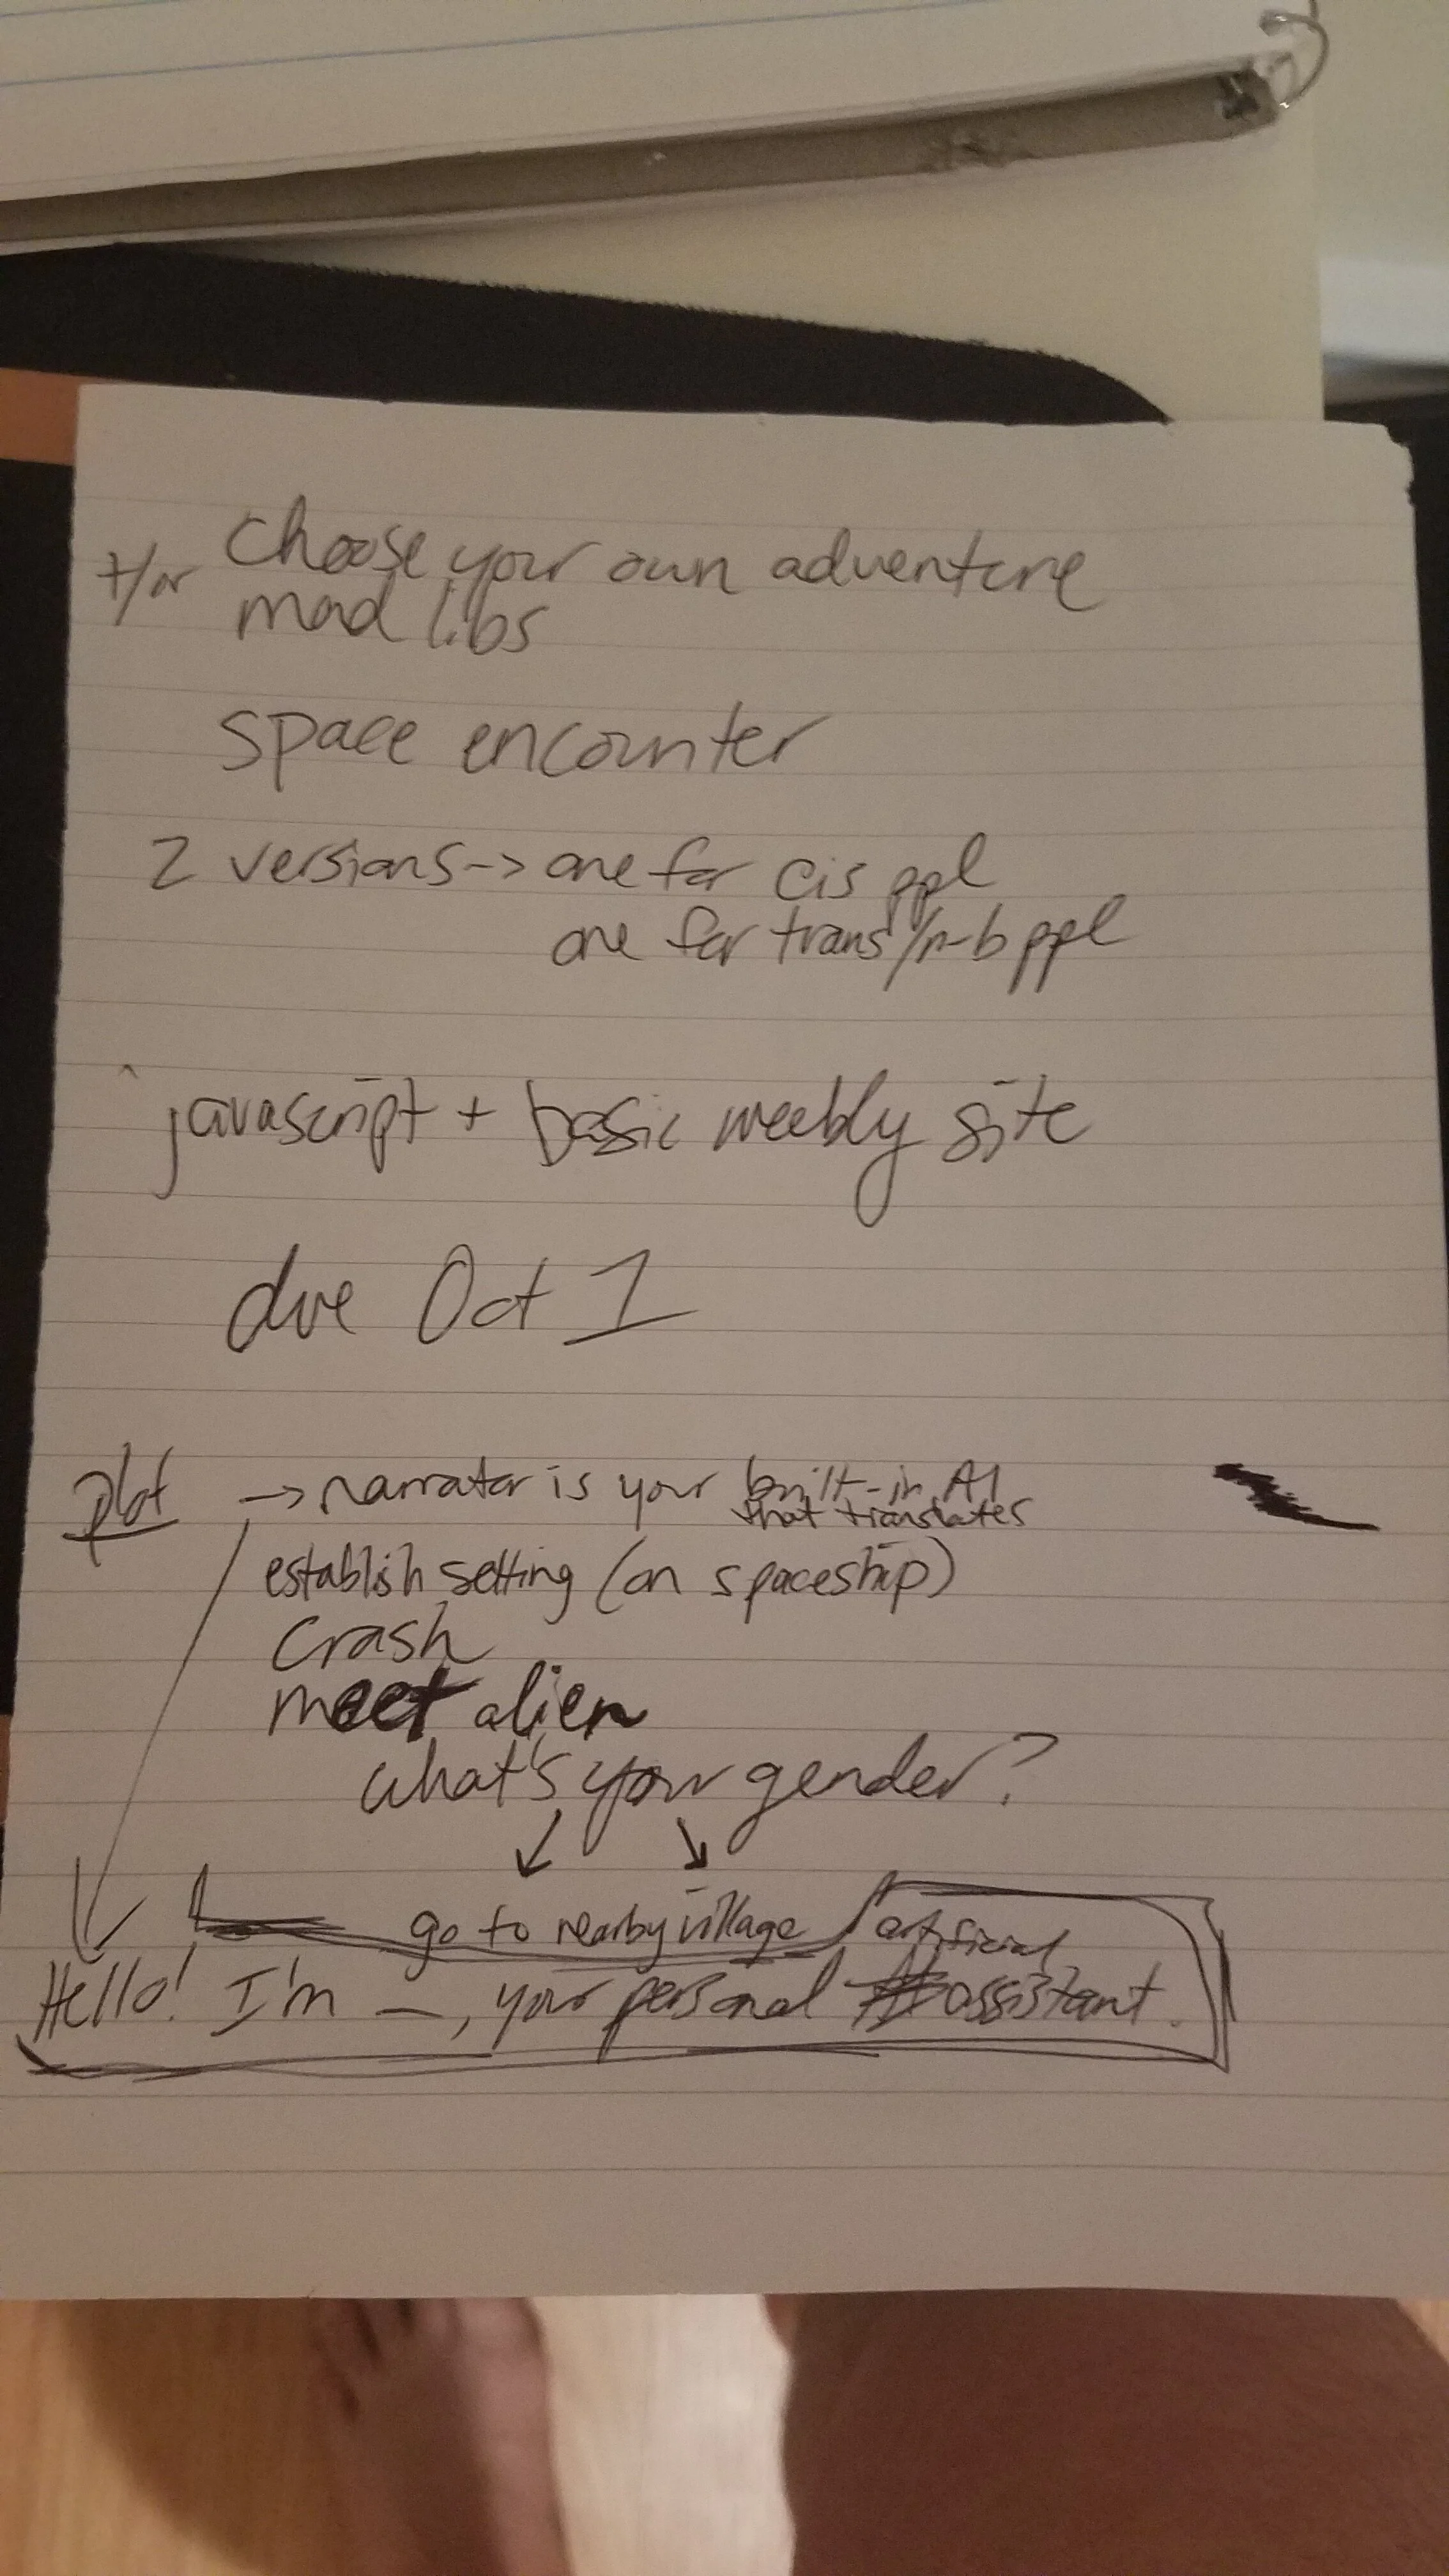 choose your own adventure
+/or mad libs
space encounter
2 versions -> one for cis ppl
one for trans/n-b ppl
javascript + basic weebly site
due Oct 1
plot -> narrator is your built-in AI
that translates
establish setting (on spaceship)
crash
meet alien
what's your gender?
go to nearby village
artificial
Hello! I'm _, your personal assistant.